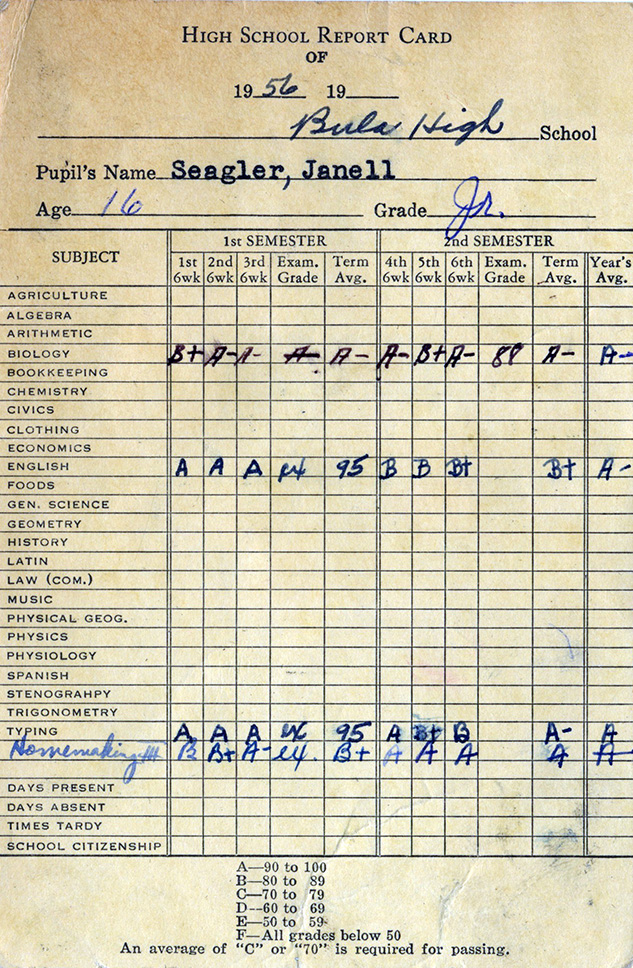 HIGH SCHOOL REPORT CARD
OF
19 56 19
Bula High School
Pupil's Name Seagler, Janell
Age 16 Grade Jr.
SUBJECT 1st SEMESTER 2nd SEMESTER
1st 6wk 2nd 6wk 3rd 6wk Exam. Grade Term Avg. 4th 6wk 5th 6wk 6th 6wk Exam. Grade Term Avg. Year's Avg.
AGRICULTURE
ALGEBRA
ARITHMETIC
BIOLOGY B+ A- A- A- A- A- B+ A- 88 A- A-
BOOKKEEPING
CHEMISTRY
CIVICS
CLOTHING
ECONOMICS
ENGLISH A A A ex 95 B B B+ B+ A-
FOODS
GEN. SCIENCE
GEOMETRY
HISTORY
LATIN
LAW (COM.)
MUSIC
PHYSICAL GEOG.
PHYSICS
PHYSIOLOGY
SPANISH
STENOGRAHPY
TRIGONOMETRY
TYPING A A A ex 95 A B+ B A- A
Homemaking III B B+ A- ex. B+ A A A A A
DAYS PRESENT
DAYS ABSENT
TIMES TARDY
SCHOOL CITIZENSHIP
A—90 to 100
B—80 to 89
C—70 to 79
D--60 to 69
E—50 to 59
F—All grades below 50
An average of "C" or "70" is required for passing.